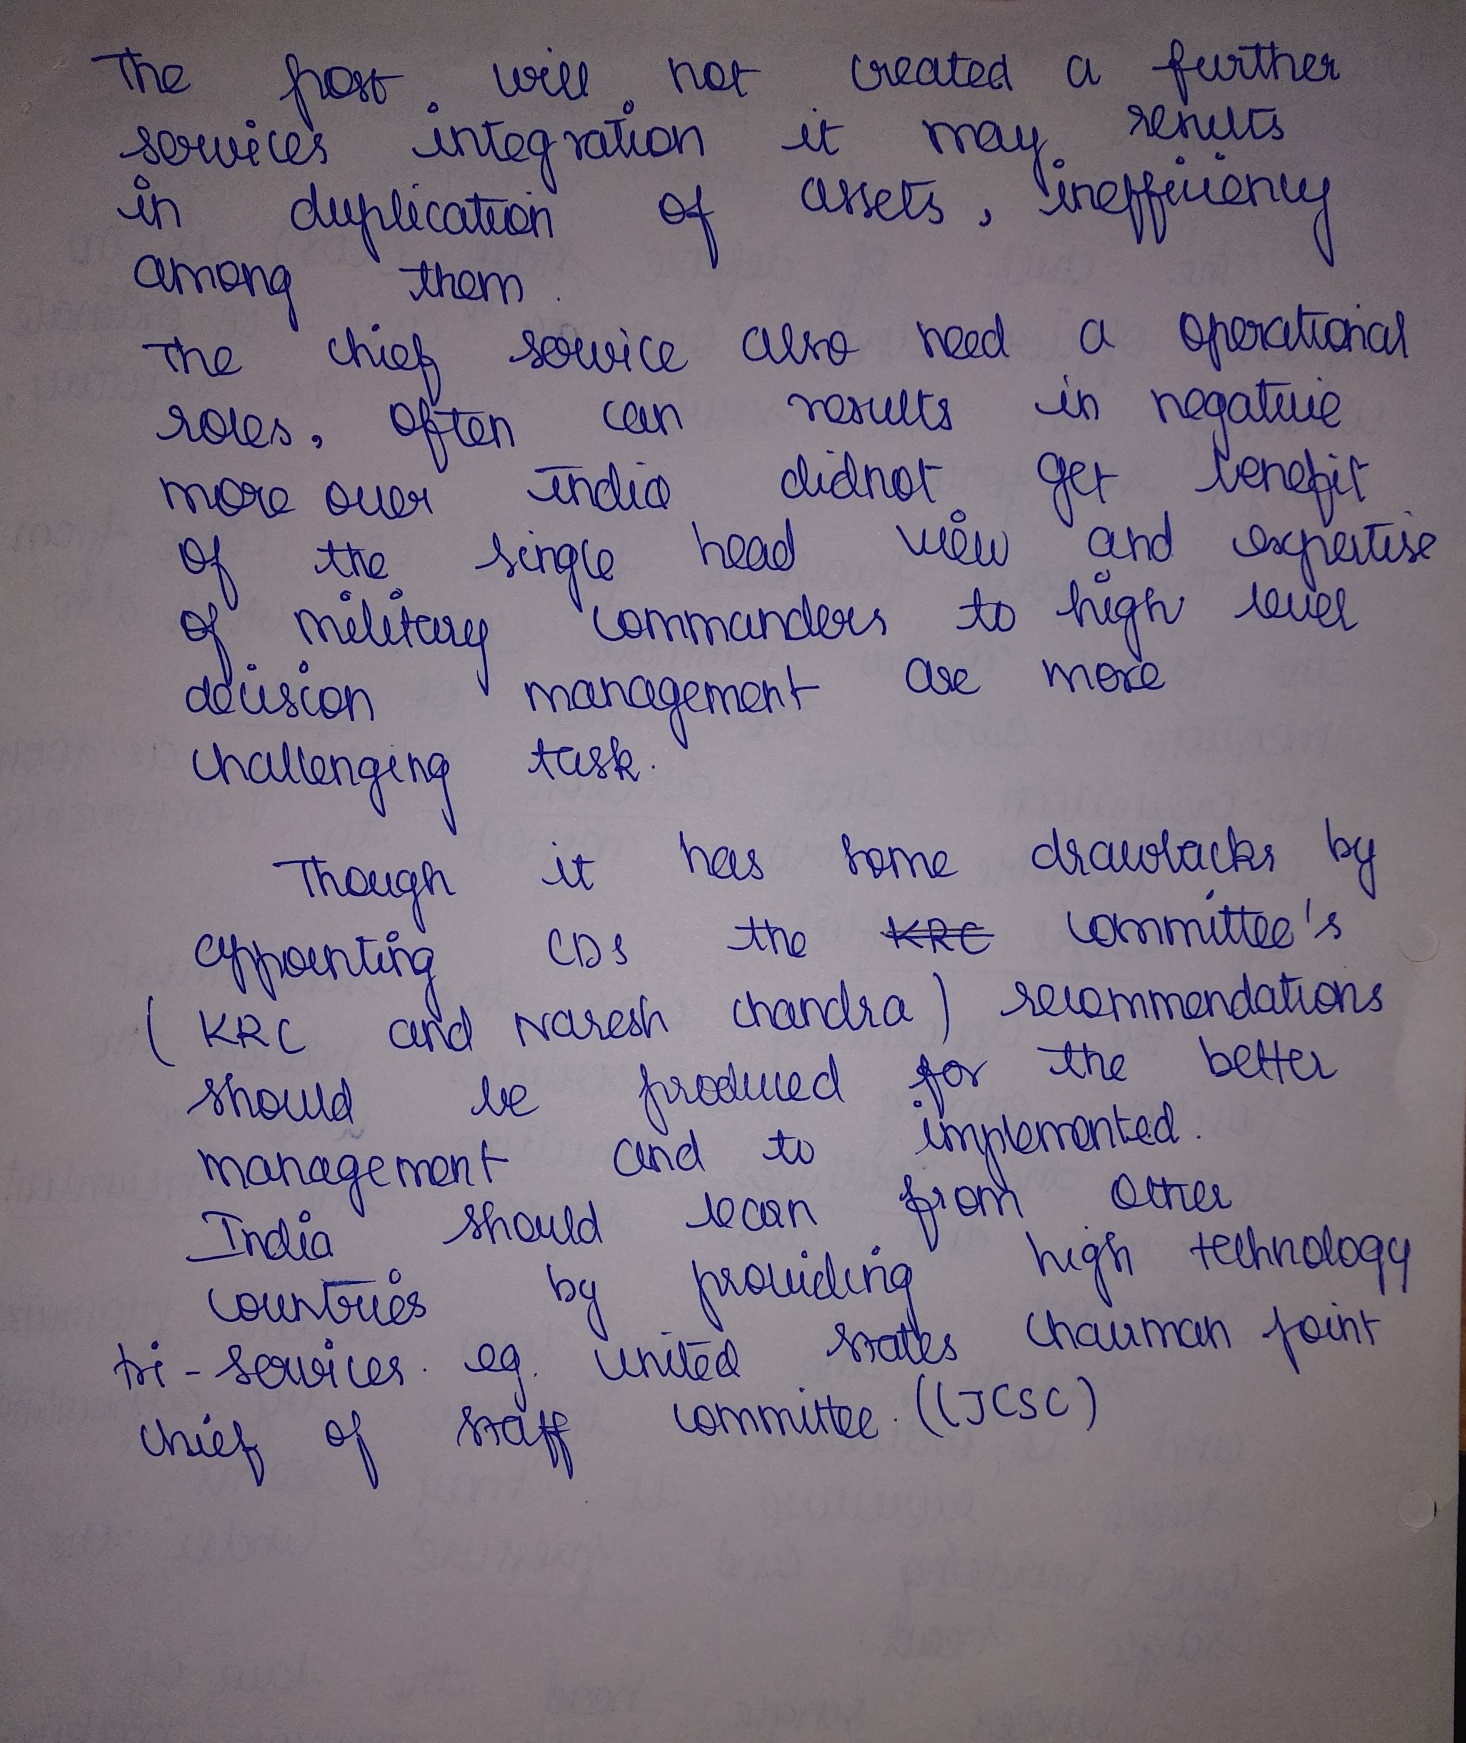 The post will not created a further
services integration it may results
in duplication of assets, inefficiency
among them.
The chief service also need a operational
roles, often can results in negative
more over India didnot get benefit
of the single head view and expertise
of military commanders to high level
decision management are more
challenging task.
Though it has some drawbacks by
appointing CDS the KRC committee's
(KRC and Naresh chandra) recommendations
should be produced for the better
management and to implemented.
India should learn from other
countries by providing high technology
tri-services. eg. United states chairman joint
chief of staff committee. ((JCSC)